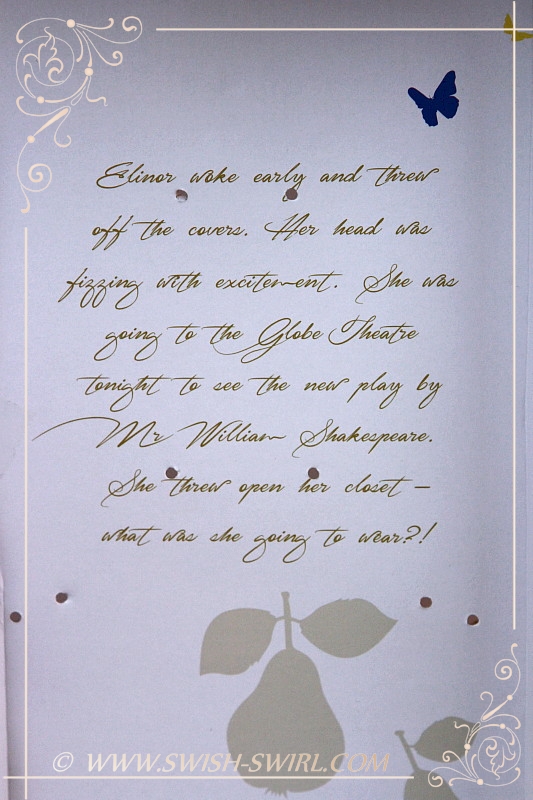 Elinor woke early and threw
off the covers. Her head was
fizzing with excitement. She was
going to the Globe Theatre
tonight to see the new play by
Mr William Shakespeare.
She threw open her closet –
what was she going to wear?!
© WWW.SWISH-SWIRL.COM